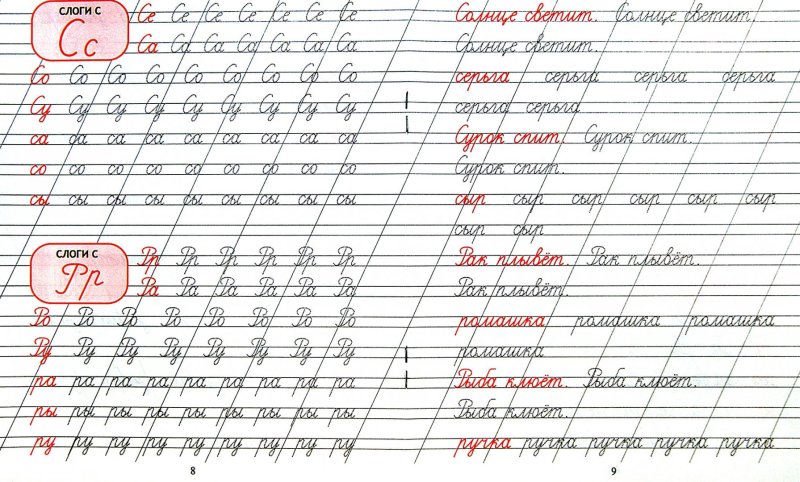 слоги с
Сс
Се Се Се Се Се Се Се
Са Са Са Са Са Са Са
Со Со Со Со Со Со Со Со Со
Су Су Су Су Су Су Су Су Су
са са са са са са са са са
со со со со со со со со со
сы сы сы сы сы сы сы сы сы
слоги с
Рр
Рр Рр Рр Рр Рр Рр
Ра Ра Ра Ра Ра Ра
Ро Ро Ро Ро Ро Ро Ро Ро
Ру Ру Ру Ру Ру Ру Ру Ру
ра ра ра ра ра ра ра ра ра
ры ры ры ры ры ры ры ры ры
ру ру ру ру ру ру ру ру ру
8
Солнце светит. Солнце светит.
Солнце светит.
серьга серьга серьга серьга
серьга серьга
Сурок спит. Сурок спит.
Сурок спит.
сыр сыр сыр сыр сыр сыр
сыр сыр
Рак плывёт. Рак плывёт.
Рак плывёт.
ромашка ромашка ромашка
ромашка
Рыба клюёт. Рыба клюёт.
Рыба клюёт.
ручка ручка ручка ручка ручка
9